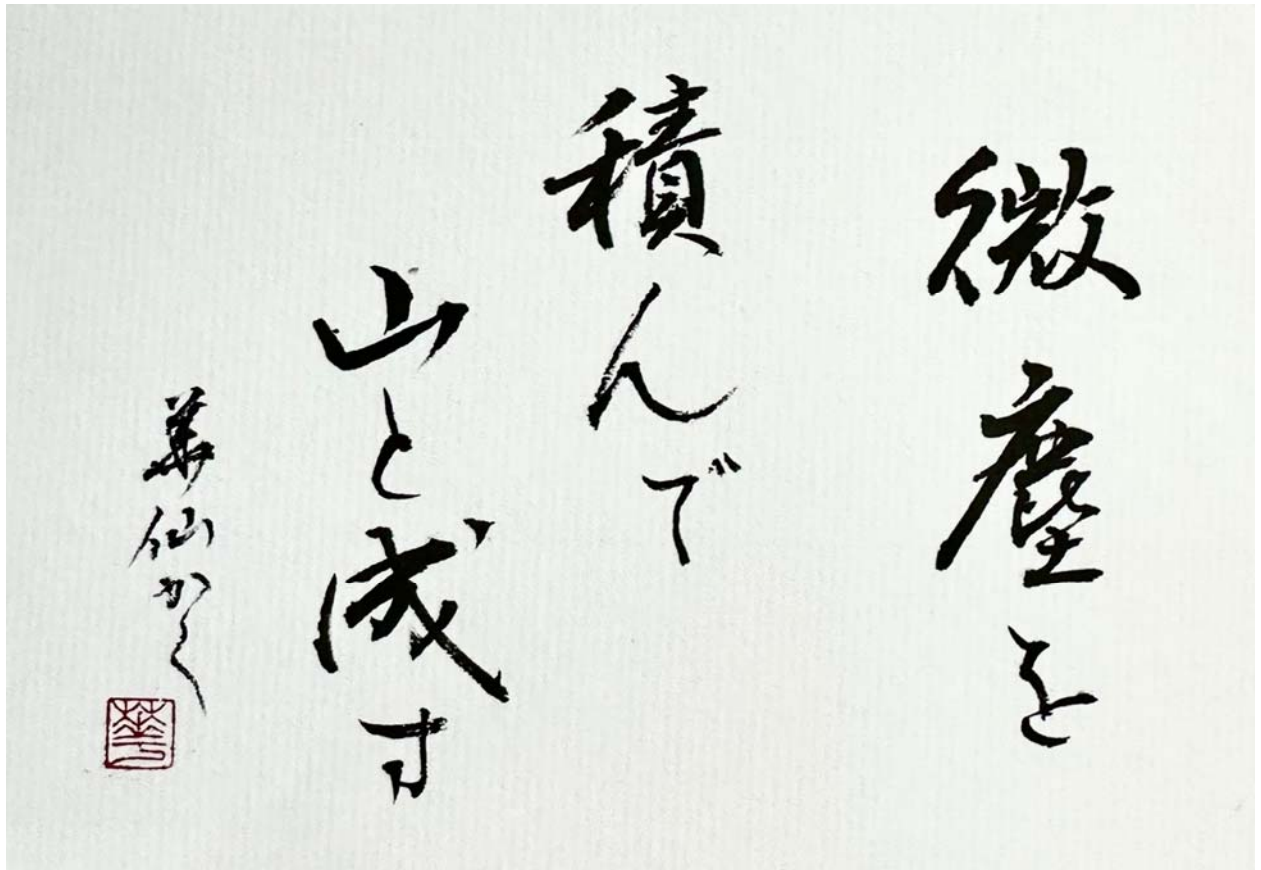 微塵を
積んで
山と成す
華仙かく
華